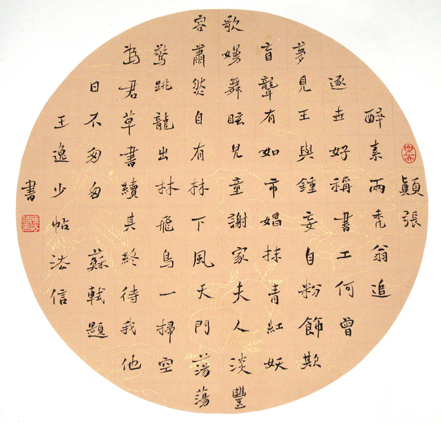 顛張
醉素兩禿翁追
逐世好稱書工何曾
夢見王與鍾妄自粉飾欺
盲聾有如市娼抹青紅妖
歌嫚舞眩兒童謝家夫人淡豐
容蕭然自有林下風天門蕩蕩
驚跳龍出林飛鳥一掃空
為君草書續其終待我他
日不匆匆 蘇軾題
王逸少帖法信
書